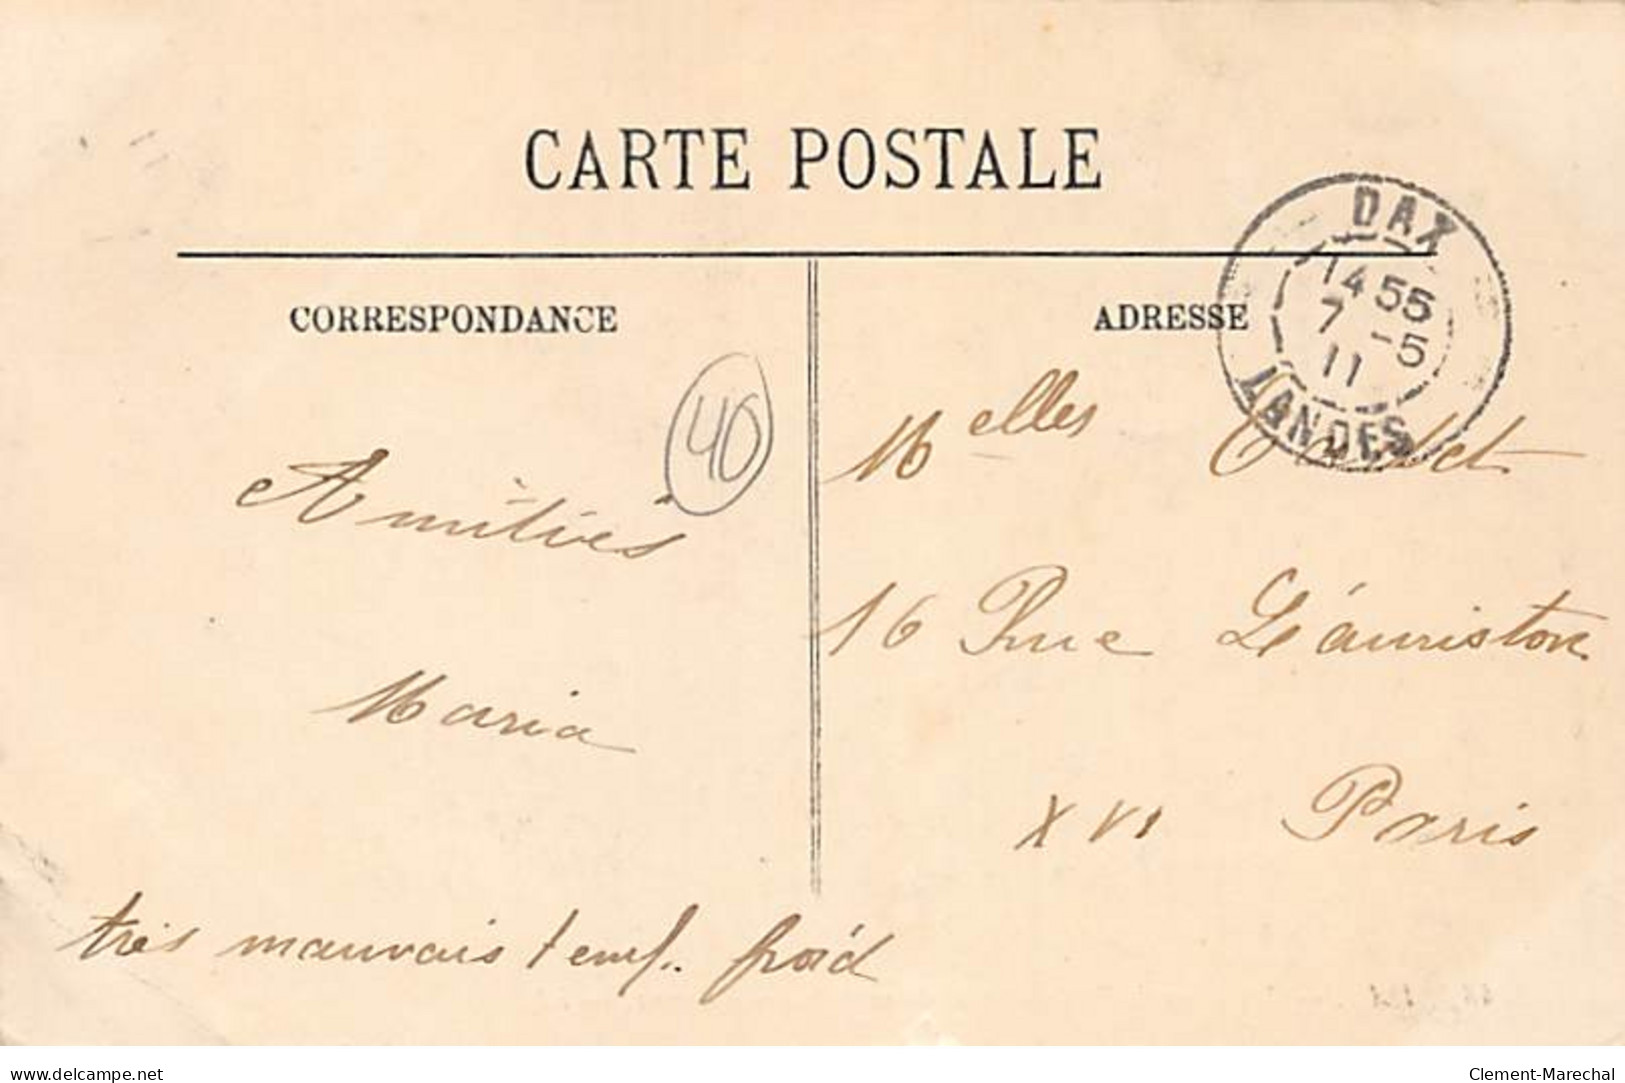 CARTE POSTALE
DAX
14 55
7 -5
11
LANDES
CORRESPONDANCE
ADRESSE
40
Melles
Amitiés
16 Rue Léauriston
Maria
XVI Paris
très mauvais temp. froid
www.delcampe.net
Clement-Marechal